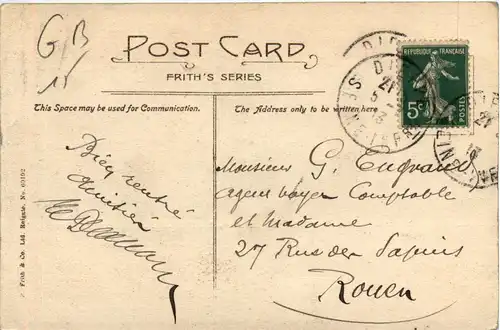 GB
POST CARD
FRITH'S SERIES
This Space may be used for Communication.
The Address only to be written here.
REPUBLIQUE FRANÇAISE
5c
POSTES
Bien rentré
Amitiés
Monsieur G.
agent voyer Comptable
et Madame
27 Rue des Sapins
Rouen
F. Frith & Co. Ltd. Reigate. No.